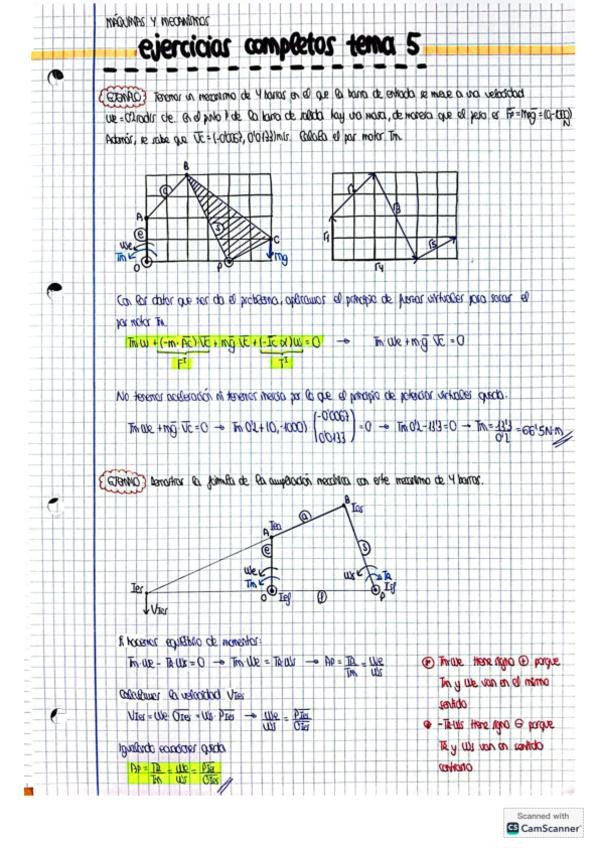 MÁQUINAS Y MECANISMOS
ejercicios completos tema 5
EJEMPLO Tenemos un mecanismo de 4 barras en el que la barra de entrada se mueve a una velocidad
We = 0'2 rad/s cte. En el punto P de la barra de salida hay una masa, de manera que el peso es Fp = mg = (0,-1000) N
Además, se sabe que Vc = (-0'0067, 0'0133) m/s. Calcula el par motor Tm.
B
a
A
e
s
We
C
Tm
mg
O
P
r1
r4
Con los datos que nos da el problema, aplicamos el principio de potencias virtuales para sacar el
par motor Tm.
Tm ω + (-m · Ac) Vc + mg Vc + (-Ic α) ω = 0 → Tm We + mg Vc = 0
F^I
T^I
No tenemos aceleración ni tenemos inercia por lo que el principio de potencias virtuales queda:
Tm We + mg Vc = 0 → Tm 0'2 + (0,-1000) (-0'0067 0'0133) = 0 → Tm 0'2 - 13'3 = 0 → Tm = 13'3/0'2 = 66'5 N·m
EJEMPLO Demostrar la fórmula de la amplificación mecánica con este mecanismo de 4 barras.
B
Ias
a
A
Iea
e
s
We
Tm
Ws
TR
Ies
O
Ief
f
P
Isf
VIes
Hacemos equilibrio de momentos:
Tm We - TR Ws = 0 → Tm We = TR Ws → Ap = TR/Tm = We/Ws
Calculamos la velocidad VIes
VIes = We OIes = Ws · PIes → We/Ws = PIes/OIes
Igualando ecuaciones queda
Ap = TR/Tm = We/Ws = PIes/OIes
Tm We tiene signo ⊕ porque
Tm y We van en el mismo
sentido
-TR Ws tiene signo ⊖ porque
TR y Ws van en sentido
contrario
Scanned with
CS CamScanner